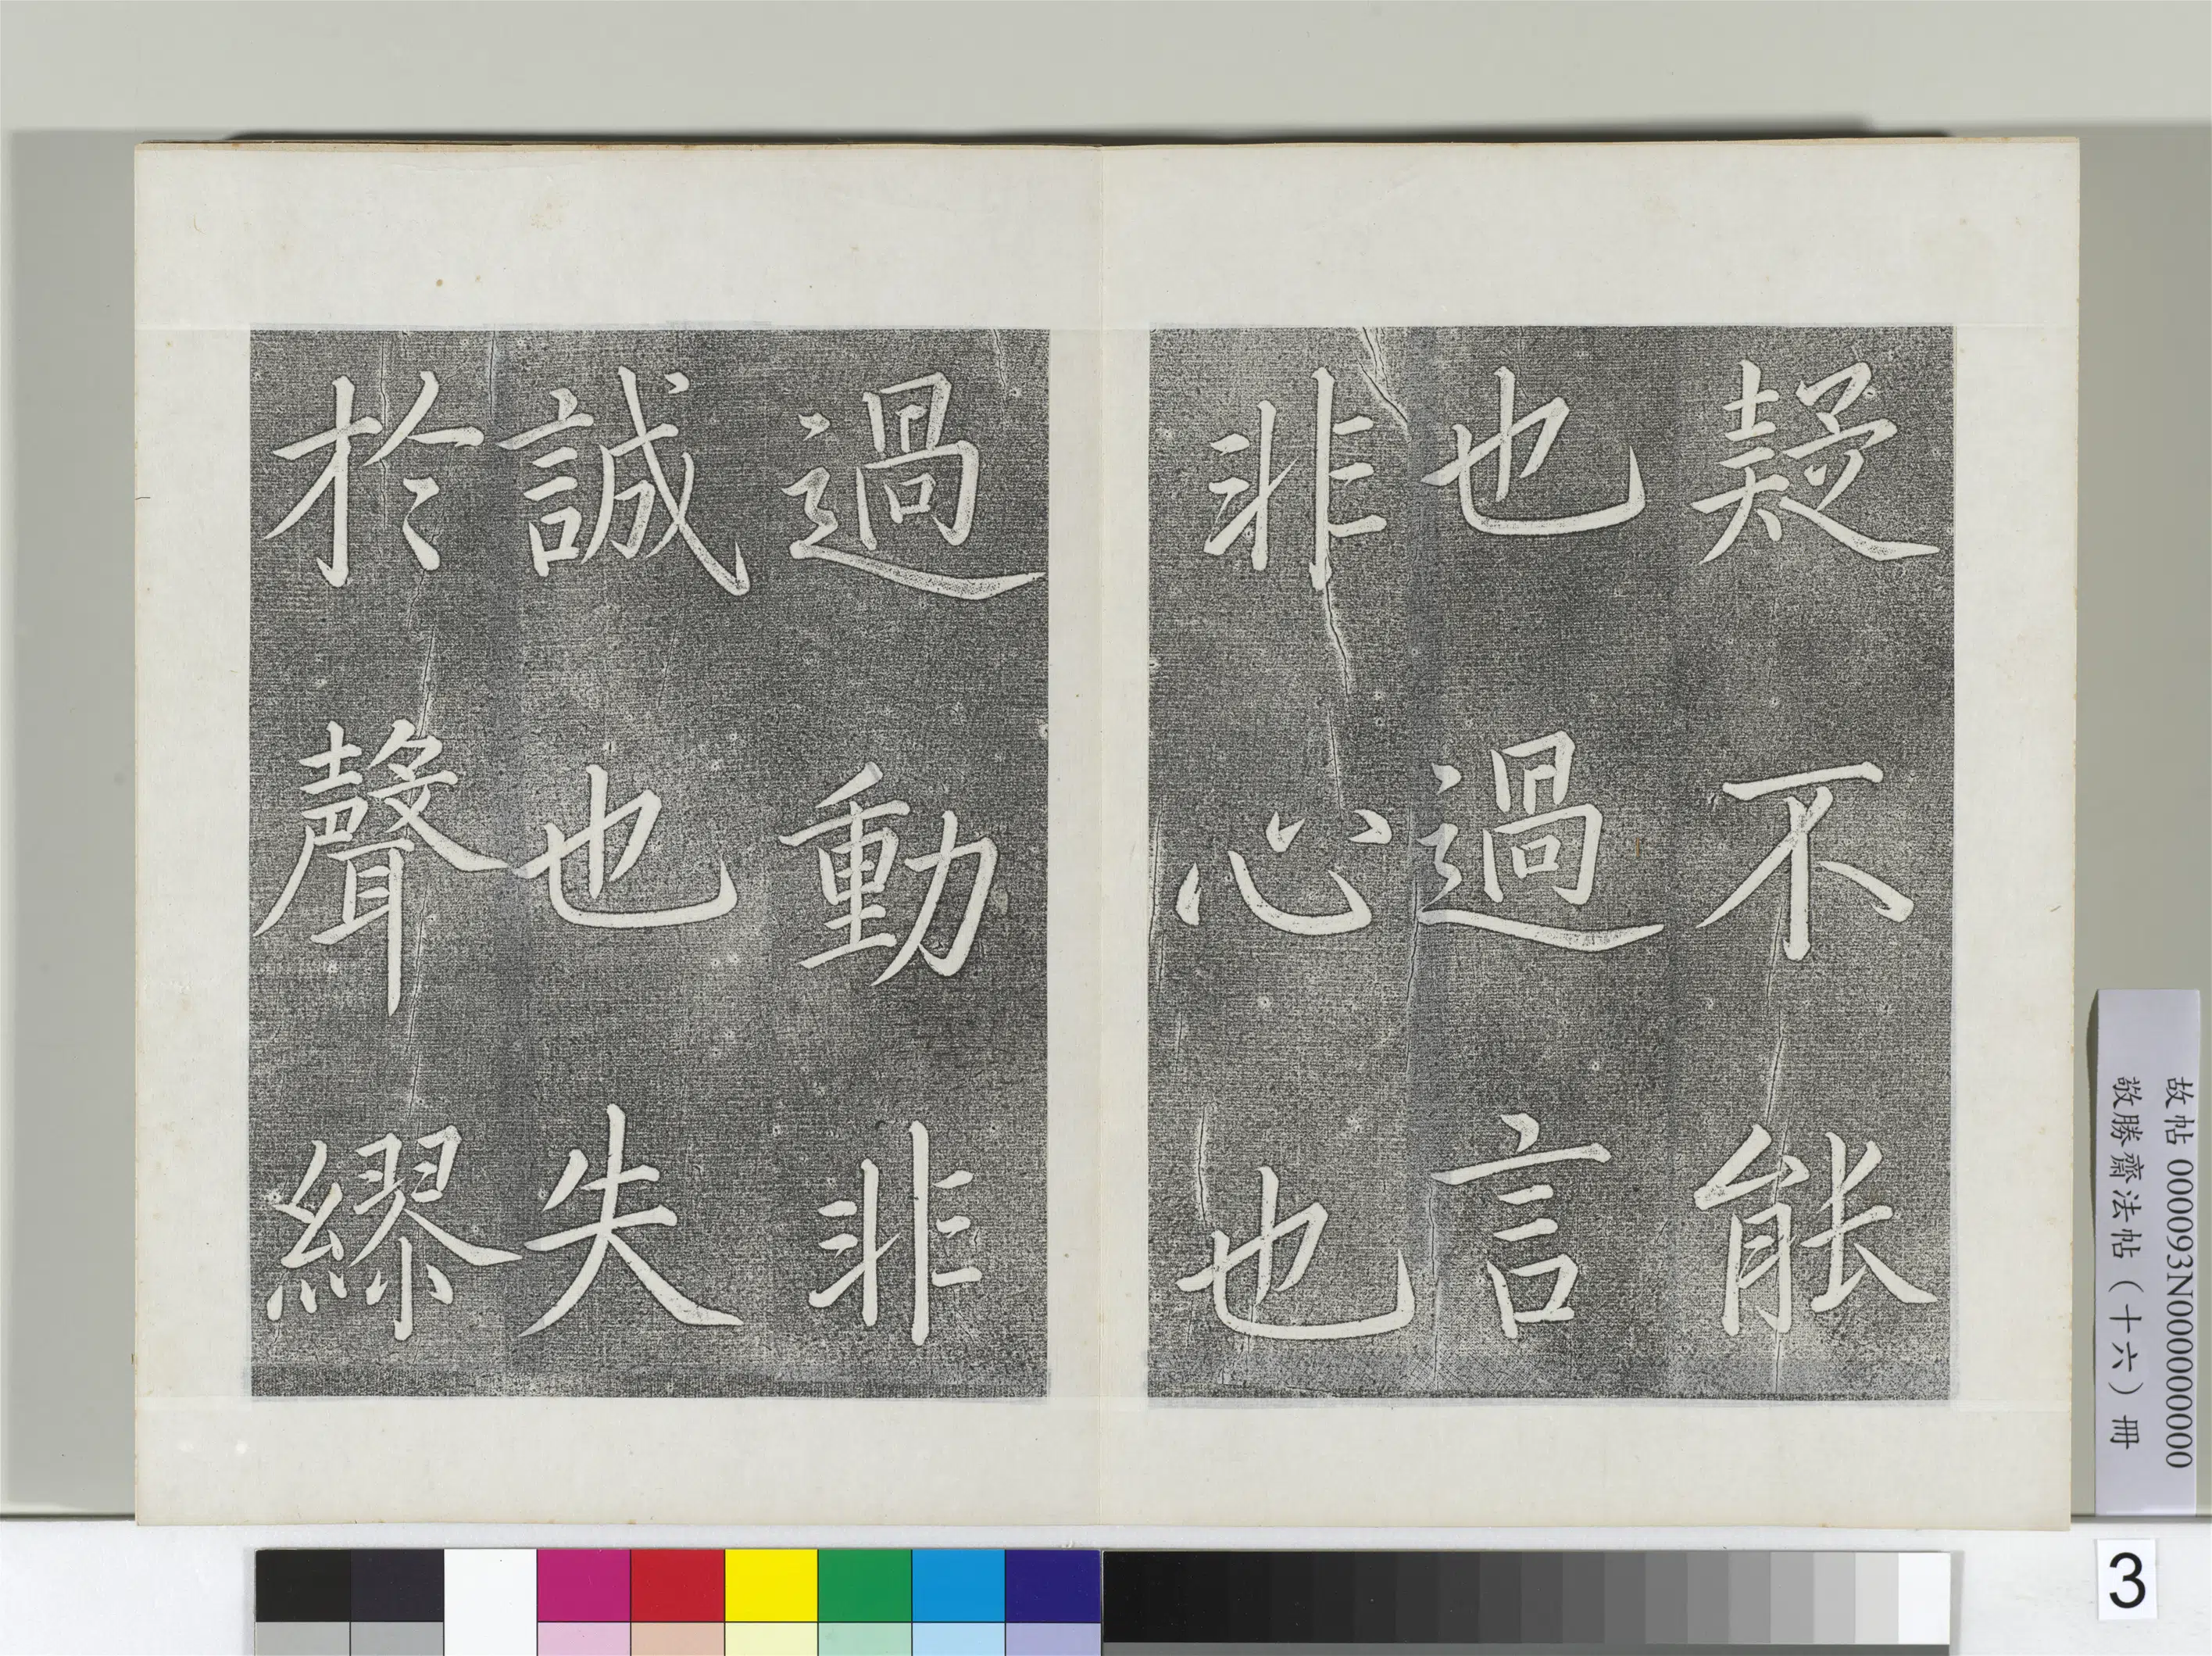 疑不能
也過言
非心也
過動非
誠也失
於聲繆
故帖 000093N000000000
敬勝齋法帖（十六）冊
3